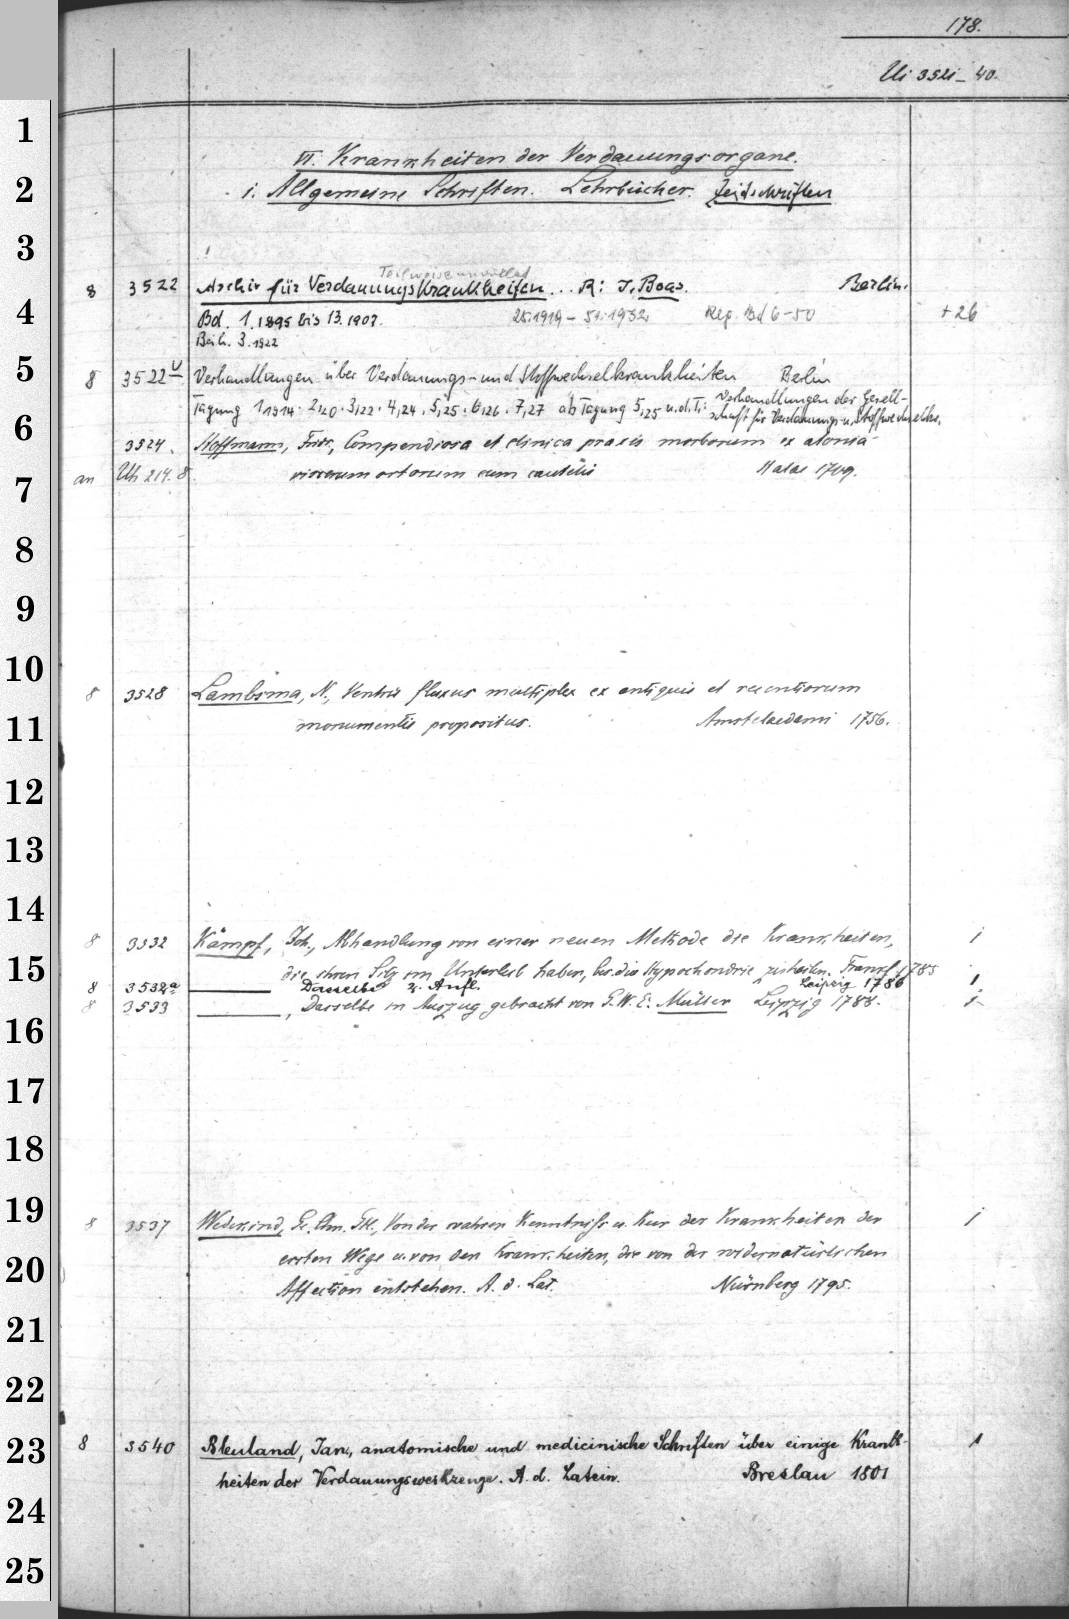 178.
Ui 3521-40.
1
VI. Krankheiten der Verdauungsorgane.
2
1. Allgemeine Schriften. Lehrbücher. Zeitschriften
3
Teilweise
8 3522 Archiv für Verdauungskrankheiten... R: J. Boas. Berlin.
4
Bd. 1.1895 bis 13.1907. 25.1919 - 51.1932. Rep. Bd 6-50 +26
Beih. 3.1922
5
8 3522 U Verhandlungen über Verdauungs- und Stoffwechselkrankheiten Berlin
Tagung 1,1914. 2,20. 3,22. 4,24. 5,25. 6,26. 7,27 ab Tagung 5,25 u.d.T.: Verhandlungen der Gesell-
schaft für Verdauungs- u. Stoffwechselkr.
6
3524. Hoffmann, Frdr., Compendiosa et clinica praxis morborum ex atonia
an Uh 214. 8 viscerum ortorum cum cautelis Halae 1709.
7
8
9
10
8 3528 Lambsma, N., Ventris fluxus multiplex ex antiquis et recentiorum
11
monumentis propositus. Amstelaedami 1756.
12
13
14
8 3532 Kämpf, Joh., Abhandlung von einer neuen Methode die Krankheiten, 1
15
die ihren Sitz im Unterleib haben, bes. die Hypochondrie zu heilen. Frankf. 1785
8 3532a ——— Dasselbe 2. Aufl. Leipzig 1786 1
8 3533 ———, Dasselbe in Auszug gebracht von G. W. C. Müller Leipzig 1788. 1
16
17
18
19
8 3537 Wedekind, G. Chn. Gl., Von der wahren Kenntniss u. Kur der Krankheiten der 1
ersten Wege u. von den Krankheiten, die von der widernatürlichen
20
Affection entstehen. A. d. Lat. Nürnberg 1795.
21
22
23
8 3540 Bleuland, Jan, anatomische und medicinische Schriften über einige Krank- 1
heiten der Verdauungswerkzeuge. A. d. Latein. Breslau 1801
24
25